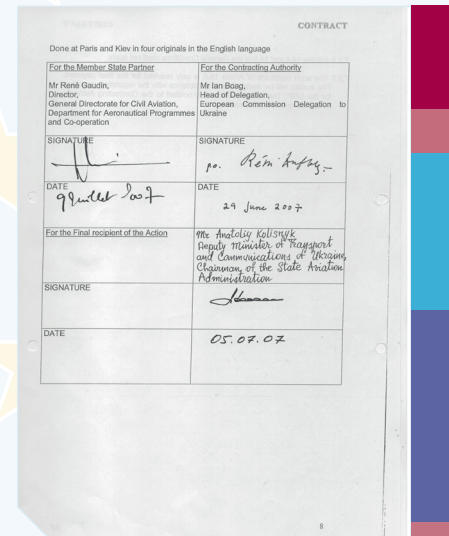 CONTRACT
Done at Paris and Kiev in four originals in the English language
For the Member State Partner
Mr René Gaudin,
Director,
General Directorate for Civil Aviation,
Department for Aeronautical Programmes
and Co-operation
For the Contracting Authority
Mr Ian Boag,
Head of Delegation,
European Commission Delegation to
Ukraine
SIGNATURE
SIGNATURE
p.o.
DATE
9 Juillet 2007
DATE
29 June 2007
For the Final recipient of the Action
Mr Anatoliy Kolisnyk
Deputy Minister of Transport
and Communications of Ukraine,
Chairman, of the State Aviation
Administration
SIGNATURE
DATE
05.07.07
8